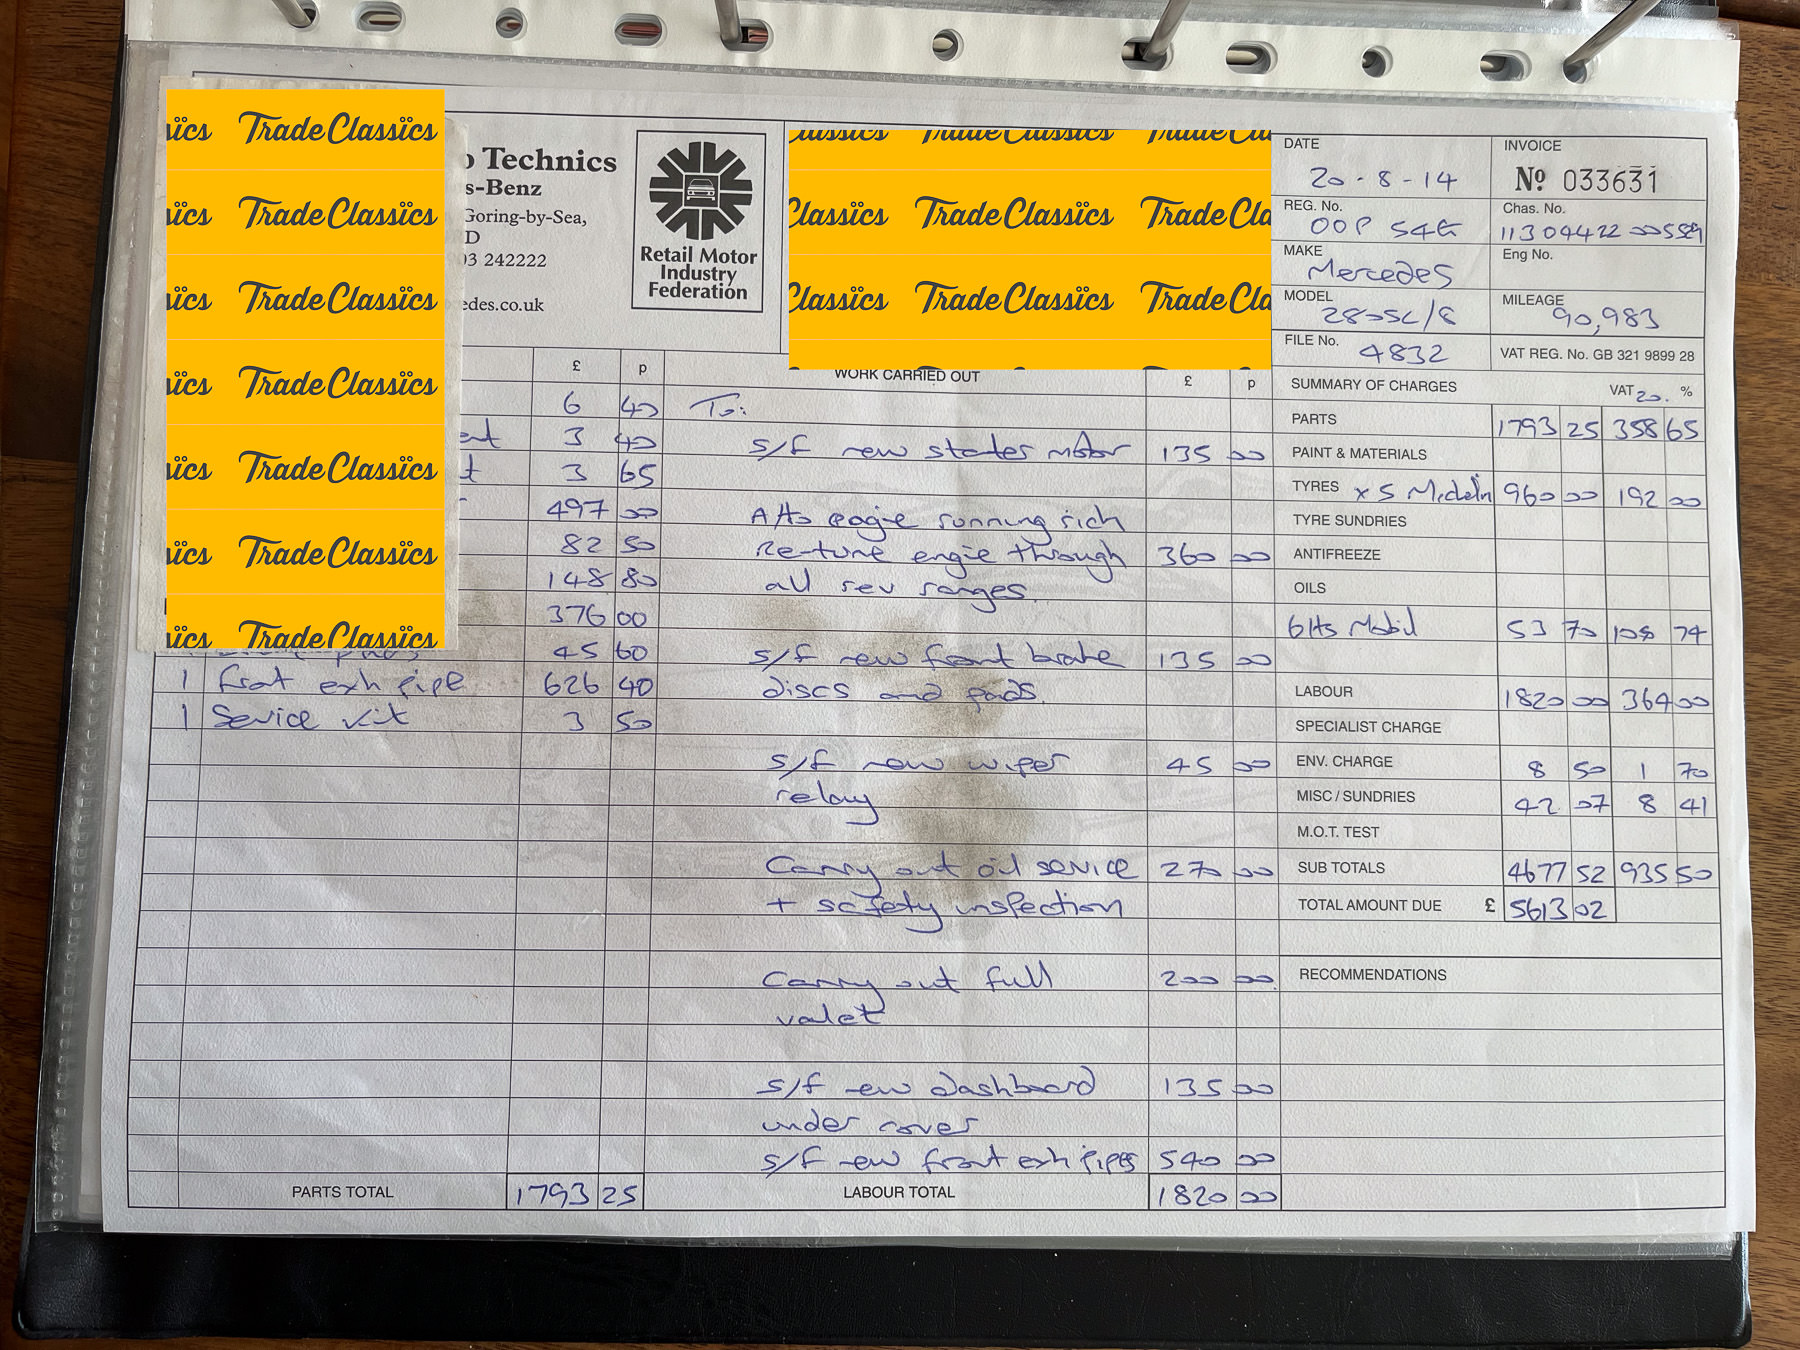 Trade Classïcs
o Technics
s-Benz
Goring-by-Sea,
D
03 242222
edes.co.uk
Retail Motor
Industry
Federation
DATE
20-8-14
INVOICE
Nº 033631
REG. No.
OOP 54G
Chas. No.
MAKE
Mercedes
Eng No.
MODEL
280SL/8
MILEAGE
90,983
FILE No.
4832
VAT REG. No. GB 321 9899 28
£ p
6 40
ent 3 40
t 3 65
497 00
82 50
148 80
376 00
45 60
1 front exh pipe 626 40
1 Service kit 3 50
PARTS TOTAL 1793 25
WORK CARRIED OUT £ p
To:
s/f new starter motor 135 00
Atto engie running rich
Re-tune engie through 360 00
all rev ranges
s/f new front brake 135 00
discs and pads.
s/f new wiper 45 00
relay
Carry out oil service 270 00
+ safety inspection
Carry out full 200 00
valet
s/f new dashboard 135 00
under cover
s/f new front exh pipes 540 00
LABOUR TOTAL 1820 00
SUMMARY OF CHARGES VAT 20. %
PARTS 1793 25 358 65
PAINT & MATERIALS
TYRES x5 Michelin 960 00 192 00
TYRE SUNDRIES
ANTIFREEZE
OILS
6lts Mobil 53 70 108 74
LABOUR 1820 00 364 00
SPECIALIST CHARGE
ENV. CHARGE 8 50 1 70
MISC / SUNDRIES 42 07 8 41
M.O.T. TEST
SUB TOTALS 4677 52 935 50
TOTAL AMOUNT DUE £ 5613 02
RECOMMENDATIONS